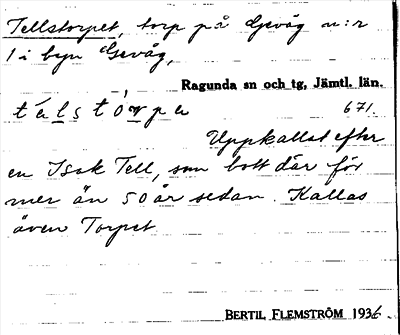 Tellstorpet, torp på Gevåg n:r
1 i byn Gevåg,
Ragunda sn och tg, Jämtl. län.
671.
Uppkallat efter
en Isak Tell, som bott där för
mer än 50 år sedan. Kallas
även Torpet
BERTIL FLEMSTRÖM 1936.